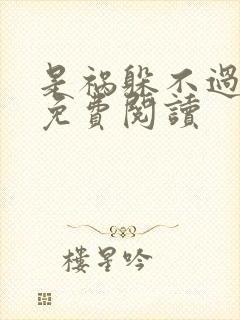 是祸躲不過
免費閱讀
樓星吟